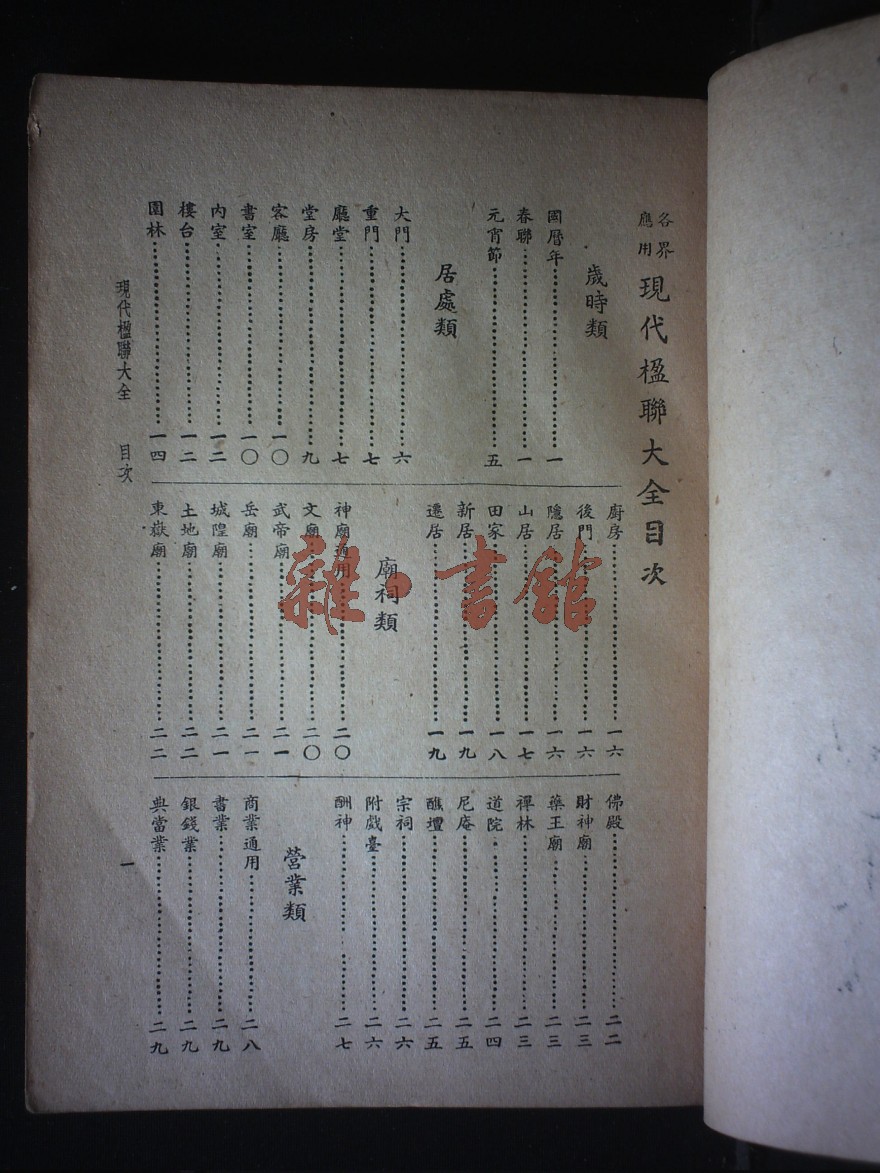 各界應用 現代楹聯大全目次
歲時類
國曆年……一
春聯……一
元宵節……五
居處類
大門……六
重門……七
廳堂……七
堂房……九
客廳……一〇
書室……一〇
內室……一二
樓台……一二
園林……一四
廚房……一六
後門……一六
隱居……一六
山居……一七
田家……一八
新居……一九
遷居……一九
廟祠類
神廟通用……二〇
文廟……二〇
武帝廟……二一
岳廟……二一
城隍廟……二一
土地廟……二二
東嶽廟……二二
佛殿……二二
財神廟……二三
藥王廟……二三
禪林……二三
道院……二四
尼庵……二五
醮壇……二五
宗祠……二六
附戲臺……二六
酬神……二七
營業類
商業通用……二八
書業……二九
銀錢業……二九
典當業……二九
現代楹聯大全 目次 一
雜·書館